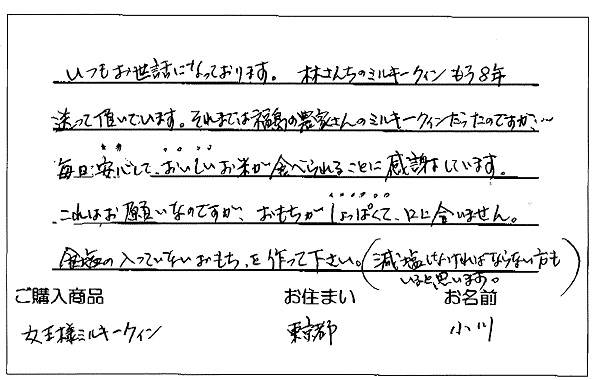 いつもお世話になっております。 林さんちのミルキークィンもう8年
送って頂いています。それまでは福島の農家さんのミルキークィンだったのですが、…
毎日安心して、おいしいお米が食べられることに感謝しています。
これはお願いなのですが、おもちがしょっぱくて、口に合いません。
食塩の入っていないおもちを作って下さい。(減塩しなければならない方も
いると思います。)
ご購入商品 お住まい お名前
女王様ミルキークィン 東京都 小川